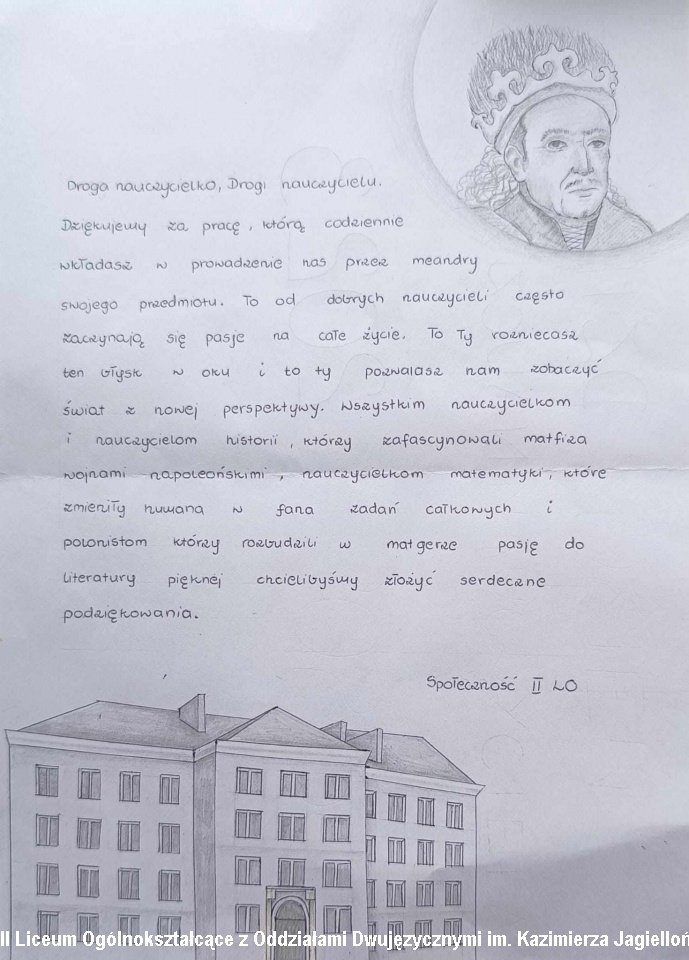 Droga nauczycielko, Drogi nauczycielu.
Dziękujemy za pracę, którą codziennie
wkładasz w prowadzenie nas przez meandry
swojego przedmiotu. To od dobrych nauczycieli często
zaczynają się pasje na całe życie. To Ty rozniecasz
ten błysk w oku i to ty pozwalasz nam zobaczyć
świat z nowej perspektywy. Wszystkim nauczycielkom
i nauczycielom historii, którzy zafascynowali matfiza
wojnami napoleońskimi, nauczycielkom matematyki, które
zmieniły humana w fana zadań całkowych i
polonistom którzy rozbudzili w matgerze pasję do
literatury pięknej chcielibyśmy złożyć serdeczne
podziękowania.
Społeczność II LO
II Liceum Ogólnokształcące z Oddziałami Dwujęzycznymi im. Kazimierza Jagielloń